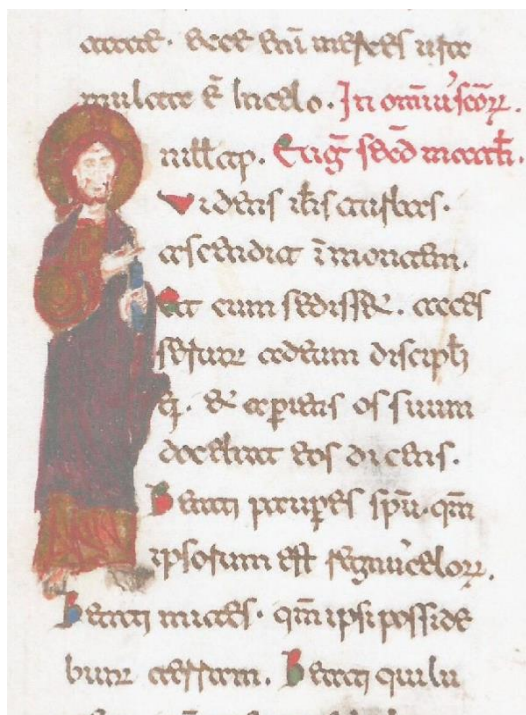 tate. Ecce eni̅ merces
multa e̅ in celo. In omniu̅ sc̅orꝝ.
Eug̅ secd̅ matth̅.
Videns ih̅s turbas.
ascendit i̅ montem.
Et cum sedisset. acces
serunt ad eum discipl̅i
ei. & aperiens os suum
docebat eos dicens.
Beati pauperes spu̅. qm̅
ipsorum est regnu̅ celorꝝ.
Beati mites. qm̅ ipsi posside
bunt terram. Beati qui lu